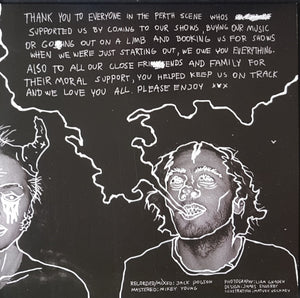 THANK YOU TO EVERYONE IN THE PERTH SCENE WHOS
SUPPORTED US BY COMING TO OUR SHOWS, BUYING OUR MUSIC
OR GOING OUT ON A LIMB AND BOOKING US FOR SHOWS
WHEN WE WERE JUST STARTING OUT, WE OWE YOU EVERYTHING.
ALSO TO ALL OUR CLOSE FRIENDS AND FAMILY FOR
THEIR MORAL SUPPORT, YOU HELPED KEEP US ON TRACK
AND WE LOVE YOU ALL. PLEASE ENJOY xxx
RECORDED/MIXED: JACK
MASTERED: MIKEY YOUNG
PHOTOGRAPHY: LIAM
DESIGN: JAMES
ILLUSTRATION: